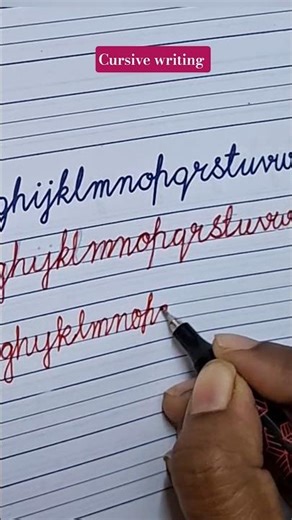 Cursive writing
ghijklmnopqrstuvw
ghijklmnopqrstuvw
ghijklmnop